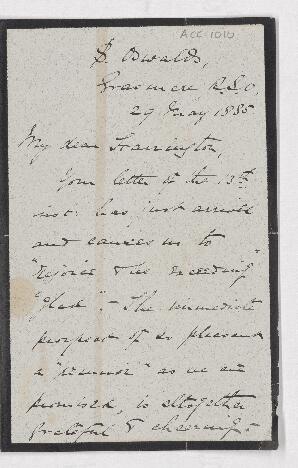 ACC 1010
S. Oswalds,
Grasmere R.S.O.,
29 May 1885
My dear Farrington,
Your letter of the 13th
inst: has just arrived
and causes us to
"rejoice & be exceeding
glad". - The immediate
prospect of so pleasant
a "reunion" as we are
promised, is altogether
grateful & cheering. -